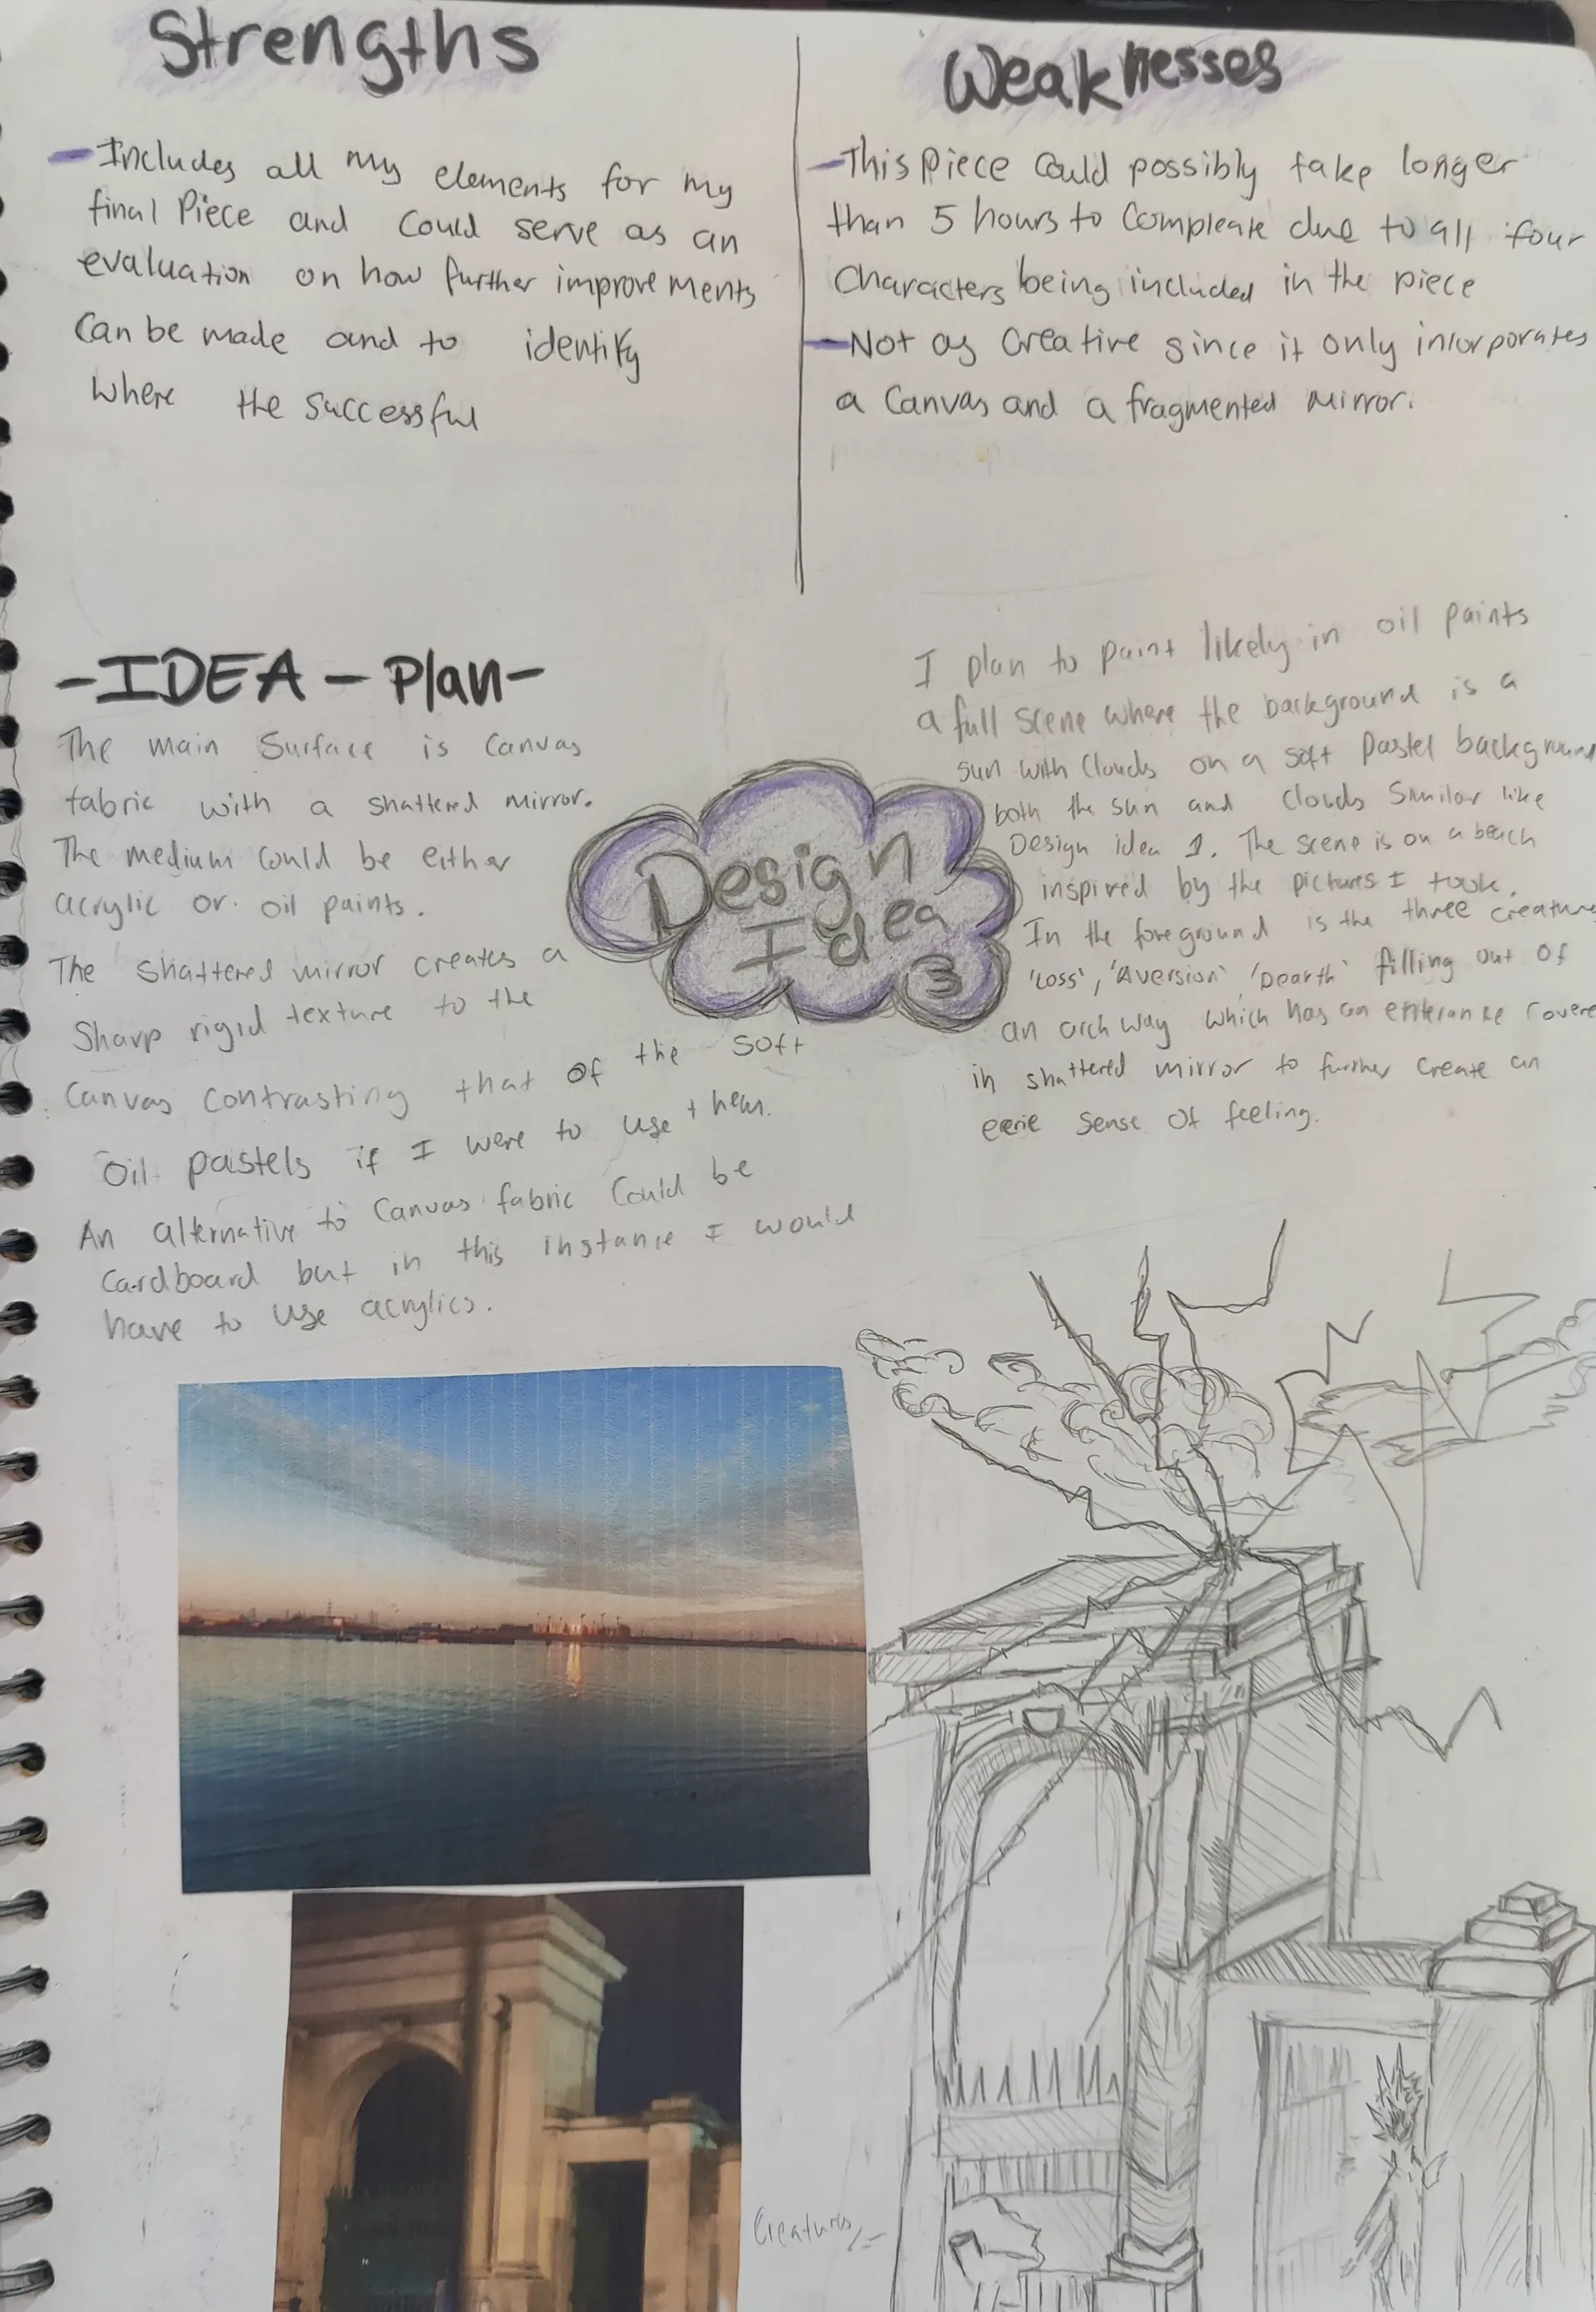 Strengths
- Includes all my elements for my
final Piece and could serve as an
evaluation on how further improvements
can be made and to identify
where the successful
Weaknesses
- This piece could possibly take longer
than 5 hours to compleate due to all four
characters being included in the piece
- Not as creative since it only incorporates
a canvas and a fragmented mirror.
-IDEA - Plan-
The main surface is canvas
fabric with a shattered mirror.
The medium could be either
acrylic or oil paints.
The shattered mirror creates a
sharp rigid texture to the
canvas contrasting that of the soft
oil pastels if I were to use them.
An alternative to canvas fabric could be
cardboard but in this instance I would
have to use acrylics.
Design
Idea
3
I plan to paint likely in oil paints
a full scene where the background is a
sun with clouds on a soft pastel background
both the sun and clouds similar like
Design idea 1. The scene is on a beach
inspired by the pictures I took.
In the foreground is the three creature
'Loss', 'Aversion' 'Dearth' filling out of
an arch way which has an enterance covere
in shattered mirror to further create an
eerie sense of feeling.
Creatures